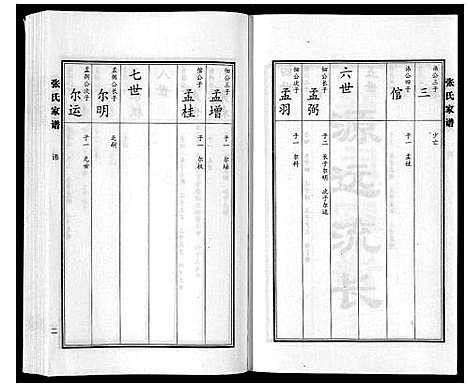 浩公三子
三
少亡
浩公四子
倌
子一 孟桂
六世
细公长子
孟弼
子二 长子尔明 次子尔运
细公次子
孟羽
子一 尔科
细公三子
孟增
倌公子
孟桂
子一 尔权
七世
孟弼公长子
尔明
孟弼公次子
尔运
子一
张氏家谱
二
张氏家谱
源远流长